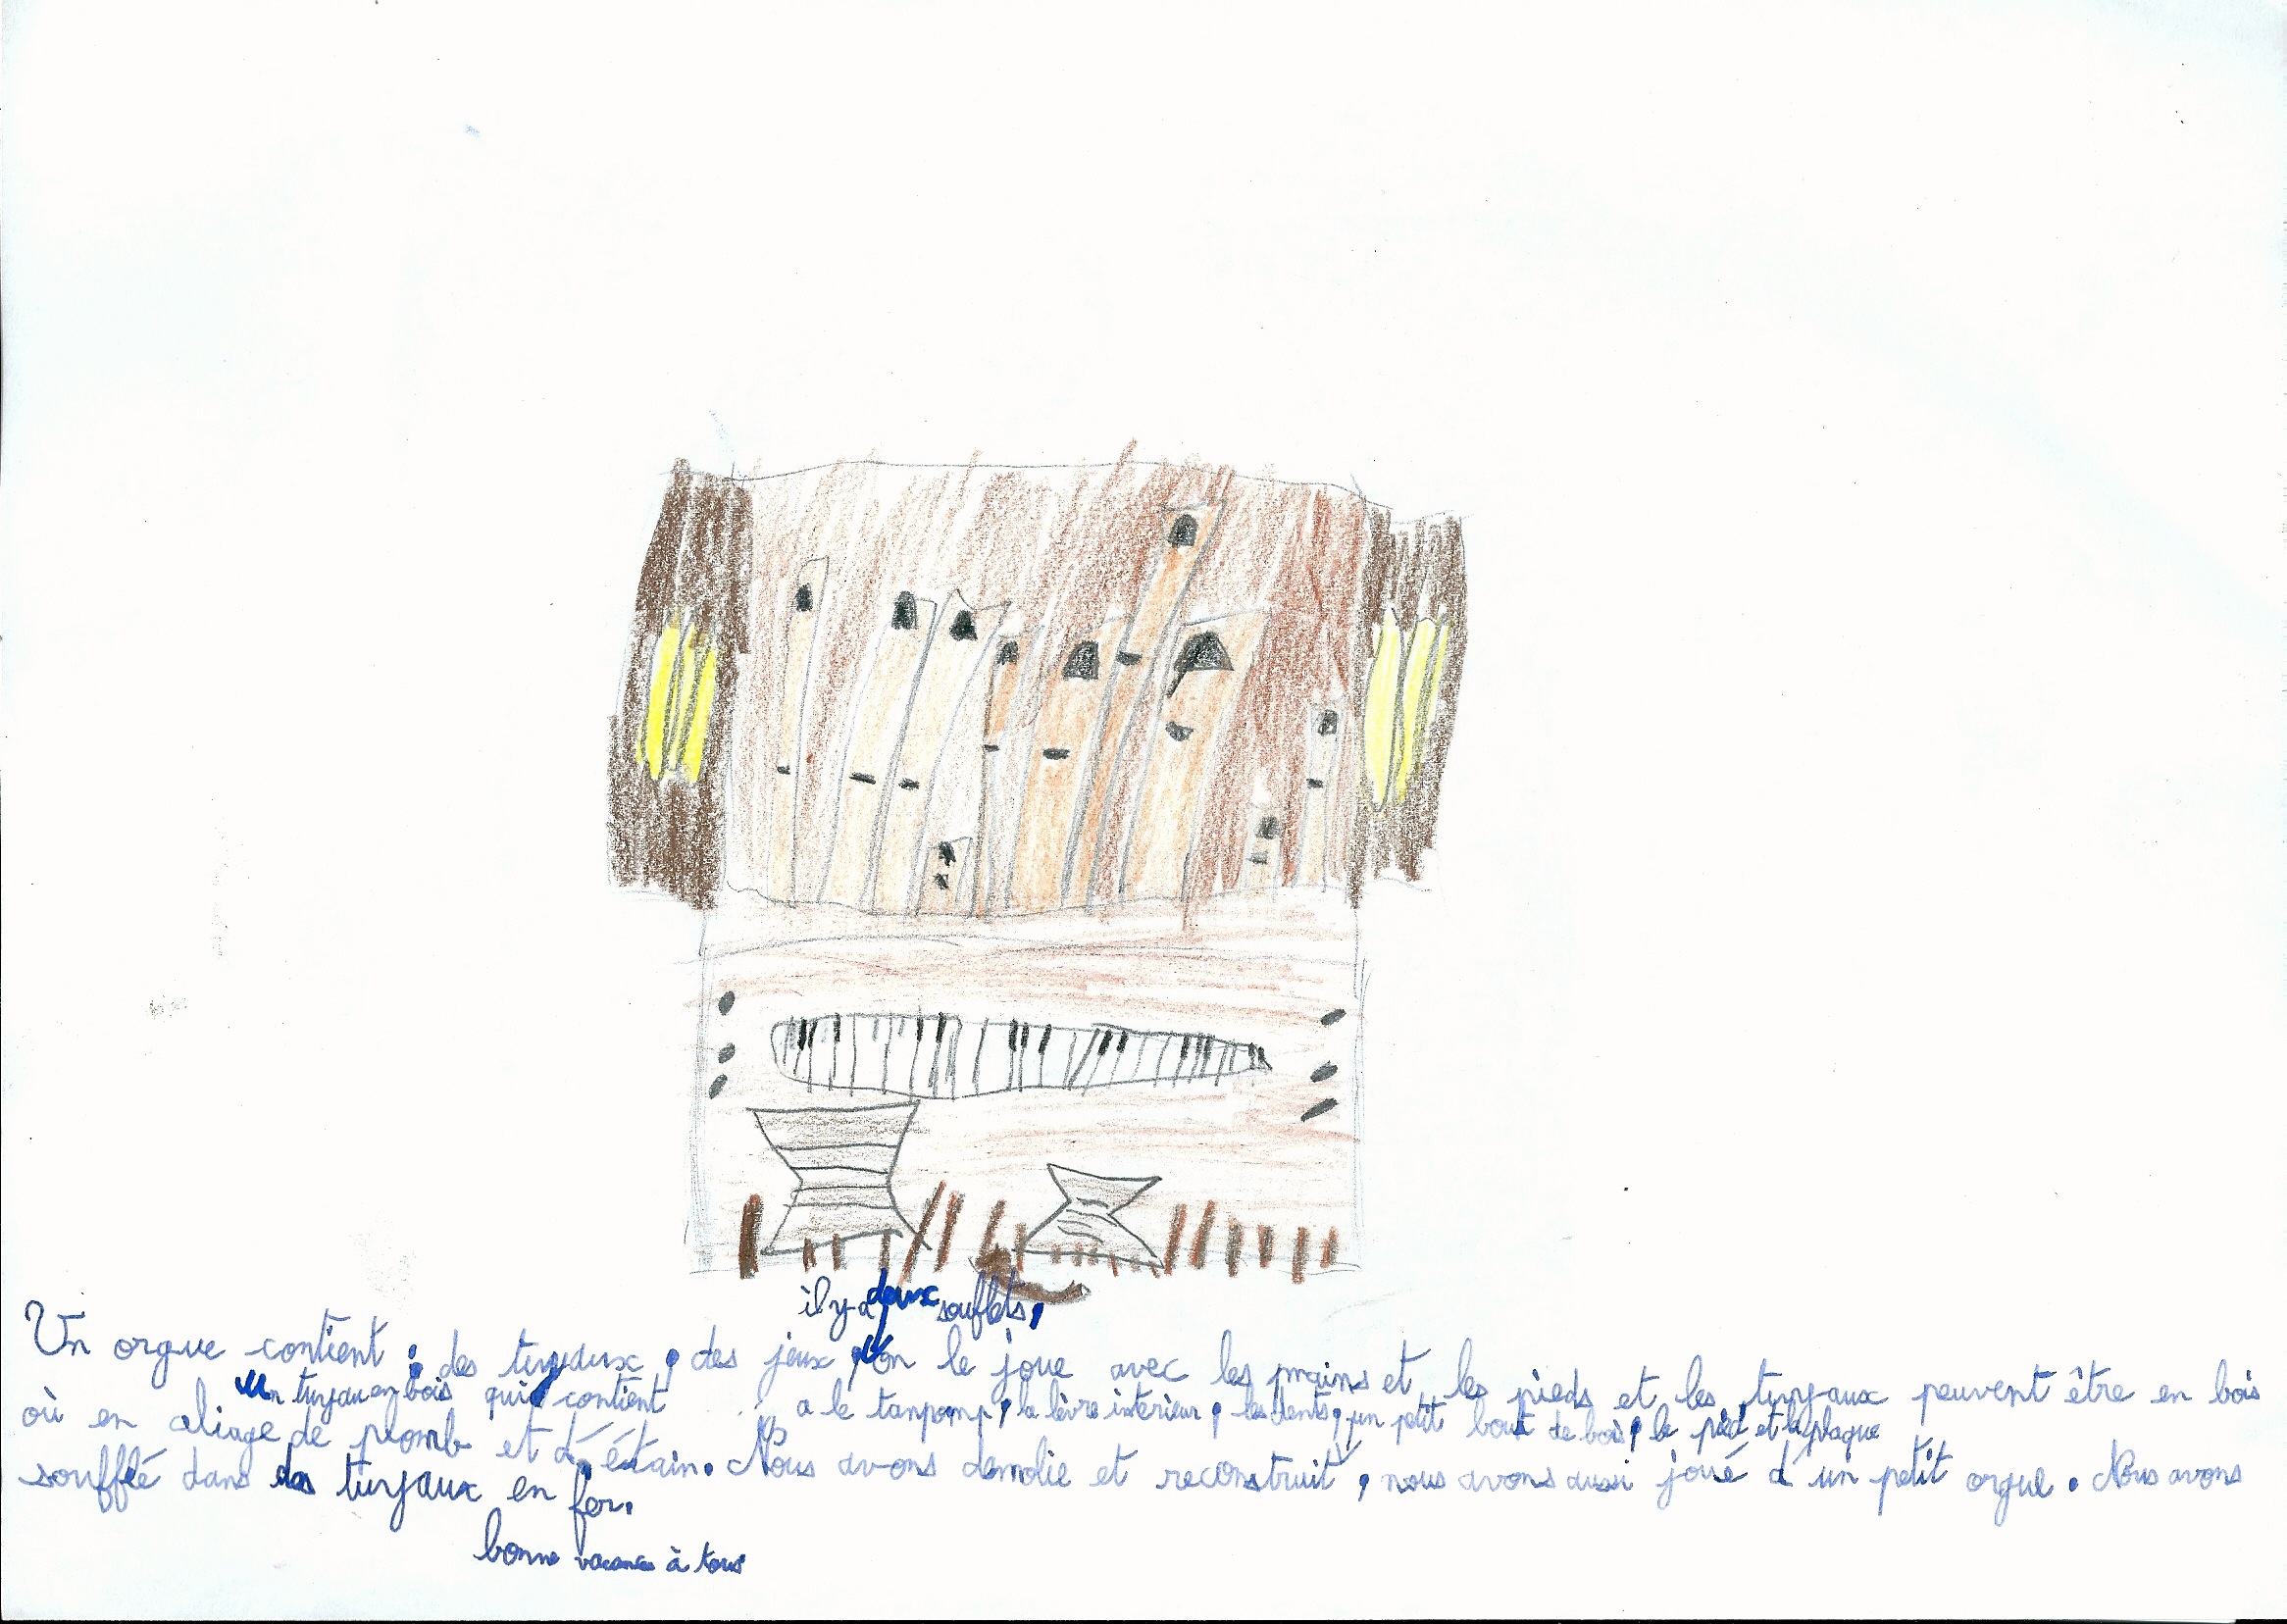 il y-a deux soufflets,
Un orgue contient : des tuyaux, des jeux, on le joue avec les mains et les pieds et les tuyaux peuvent être en bois
un tuyau en bois qui contient a le tanponp, la lèvre intèrieur, les dents, un petit bout de bois, le pied et la plaque
où en aliage de plomb et d'étain. Nous avons demolie et reconstruit, nous avons aussi joué d'un petit orgue. Nous avons
soufflé dans des tuyaux en fer.
bonne vacance à tous